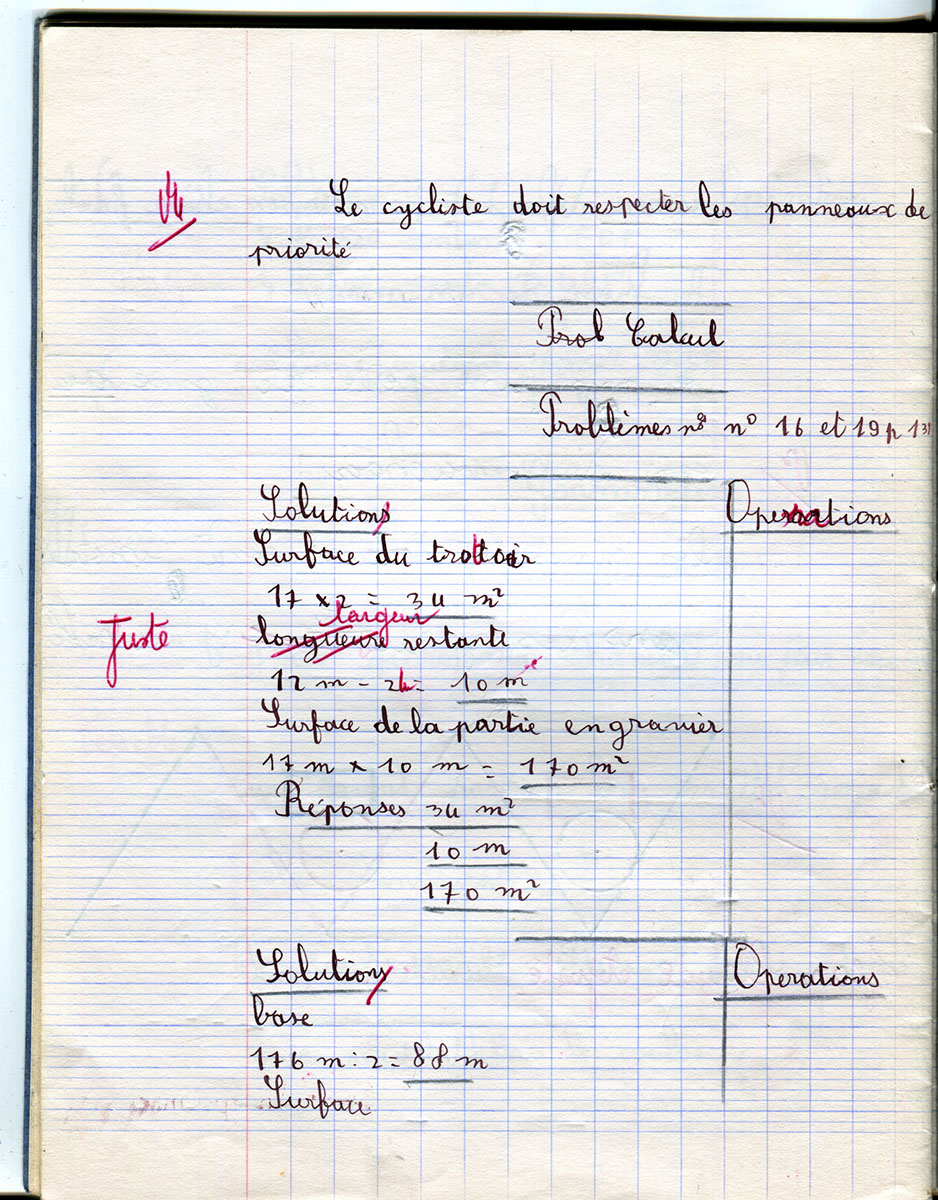 Vu
Le cycliste doit respecter les panneaux de
priorité
Prob Calcul
Problèmes nos no 16 et 19 p 131
Solutions
Operations
Surface du trottoir
17 x 2 = 34 m²
largeur
Juste
longueure restante
12 m - 2m = 10 m
Surface de la partie en gravier
17 m x 10 m = 170 m²
Réponses 34 m²
10 m
170 m²
Solutions
Operations
base
176 m : 2 = 88 m
Surface